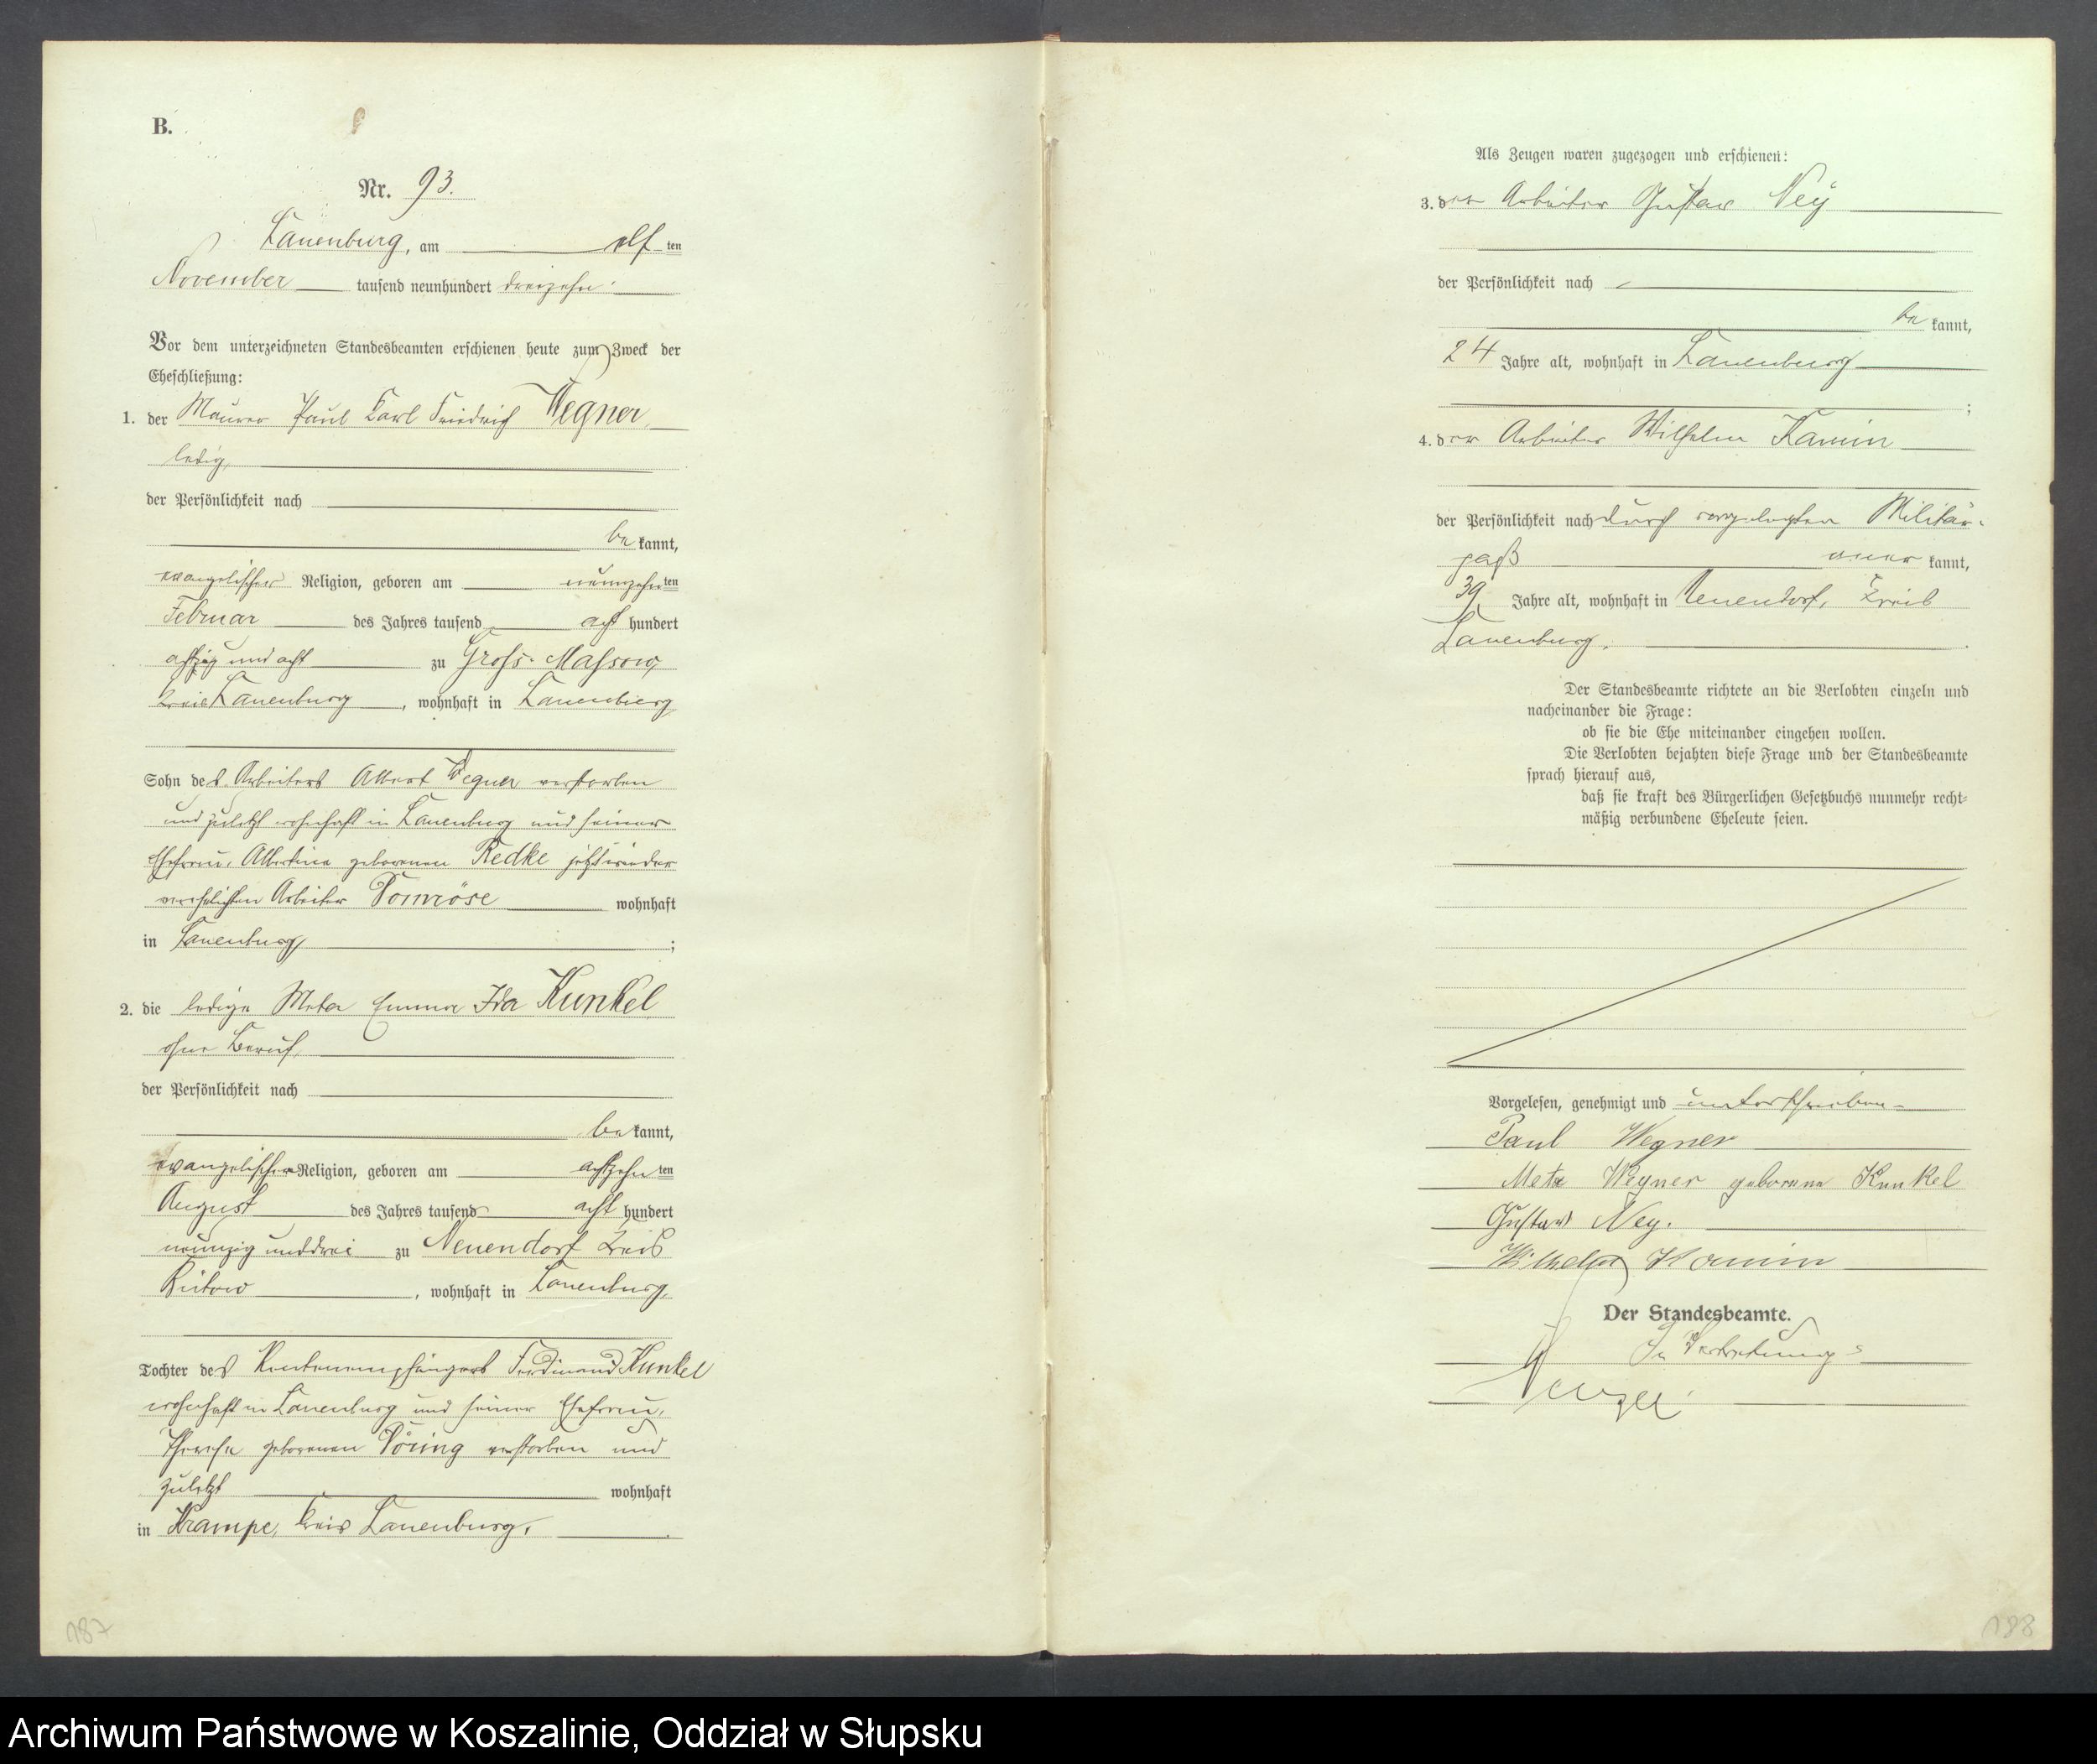 B.
Nr. 93.
Lauenburg, am elf ten
November tausend neunhundert dreizehn.
Vor dem unterzeichneten Standesbeamten erschienen heute zum Zweck der
Eheschließung:
1. der Maurer Paul Carl Friedrich Wegner,
ledig,
der Persönlichkeit nach
be kannt,
evangelischer Religion, geboren am neunzehn ten
Februar des Jahres tausend acht hundert
achtzig und acht zu Gross-Massow,
Kreis Lauenburg, wohnhaft in Lauenburg
Sohn des Arbeiters Albert Wegner verstorben
und zuletzt wohnhaft in Lauenburg und seiner
Ehefrau, Albertine geborenen Redke jetzt wieder
verehelichten Arbeiter wohnhaft
in Lauenburg;
2. die ledige Meta Emma Ida Kunkel
ohne Beruf,
der Persönlichkeit nach
be kannt,
evangelischer Religion, geboren am achtzehn ten
August des Jahres tausend acht hundert
neunzig und drei zu Neuendorf Kreis
Bütow, wohnhaft in Lauenburg,
Tochter des Rentenempfängers Ferdinand Kunkel
wohnhaft in Lauenburg und seiner Ehefrau,
Therese geborenen verstorben und
zuletzt wohnhaft
in Krampe, Kreis Lauenburg.
187
Als Zeugen waren zugezogen und erschienen:
3. der Arbeiter Gustav Ney
der Persönlichkeit nach
be kannt,
24 Jahre alt, wohnhaft in Lauenburg
;
4. der Arbeiter Wilhelm Kamin
der Persönlichkeit nach durch vorgelegten Militär-
paß aner kannt,
39 Jahre alt, wohnhaft in Neuendorf, Kreis
Lauenburg.
Der Standesbeamte richtete an die Verlobten einzeln und
nacheinander die Frage:
ob sie die Ehe miteinander eingehen wollen.
Die Verlobten bejahten diese Frage und der Standesbeamte
sprach hierauf aus,
daß sie kraft des Bürgerlichen Gesetzbuchs nunmehr recht-
mäßig verbundene Eheleute seien.
Vorgelesen, genehmigt und unterschrieben
Paul Wegner
Meta Wegner geborene Kunkel
Gustav Ney.
Wilhelm Kamin
Der Standesbeamte.
In Vertretung
188
Archiwum Państwowe w Koszalinie, Oddział w Słupsku